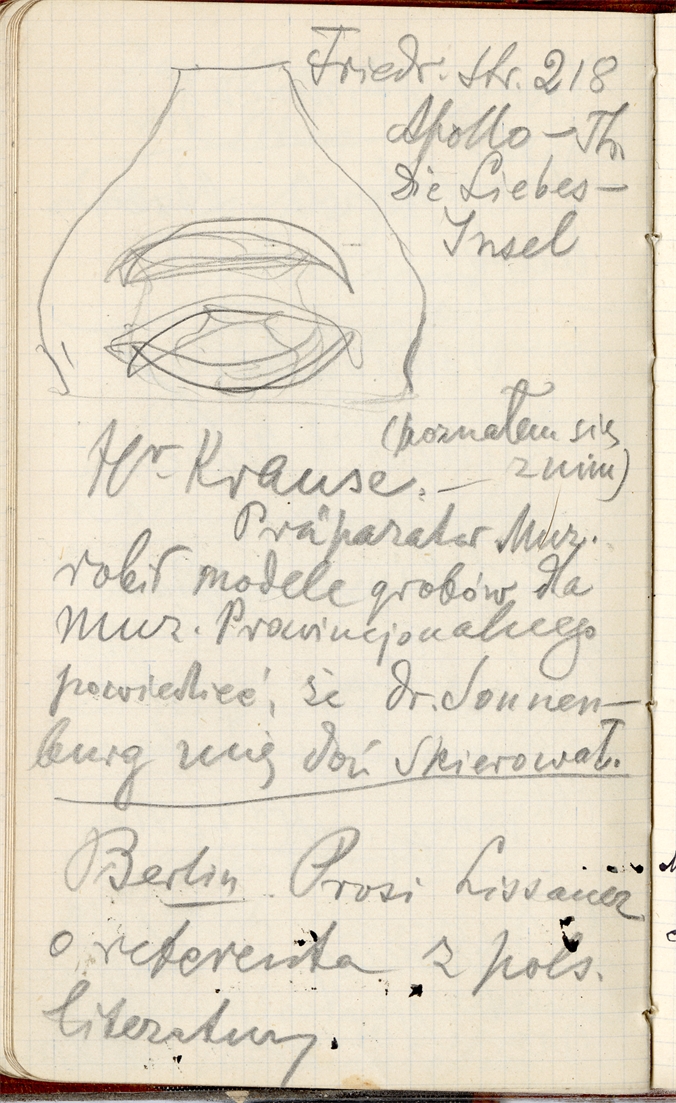 Friedr. Str. 218
Apollo – Th.
Die Liebes–
Insel
(poznałem się
z nim)
Hr. Krause. –
Präparator Muz.
robił modele grobów dla
Muz. Prowincjonalnego
powiedzieć, że dr. Sonnen–
burg mię doń skierował.
Berlin Prosi Lissauer
o referenta z pols.
literatury.